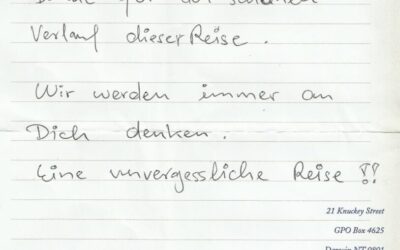 Verlauf dieser Reise.
Wir werden immer an
Dich denken.
Eine unvergessliche Reise !!
21 Knuckey Street
GPO Box 4625
Darwin NT 0801